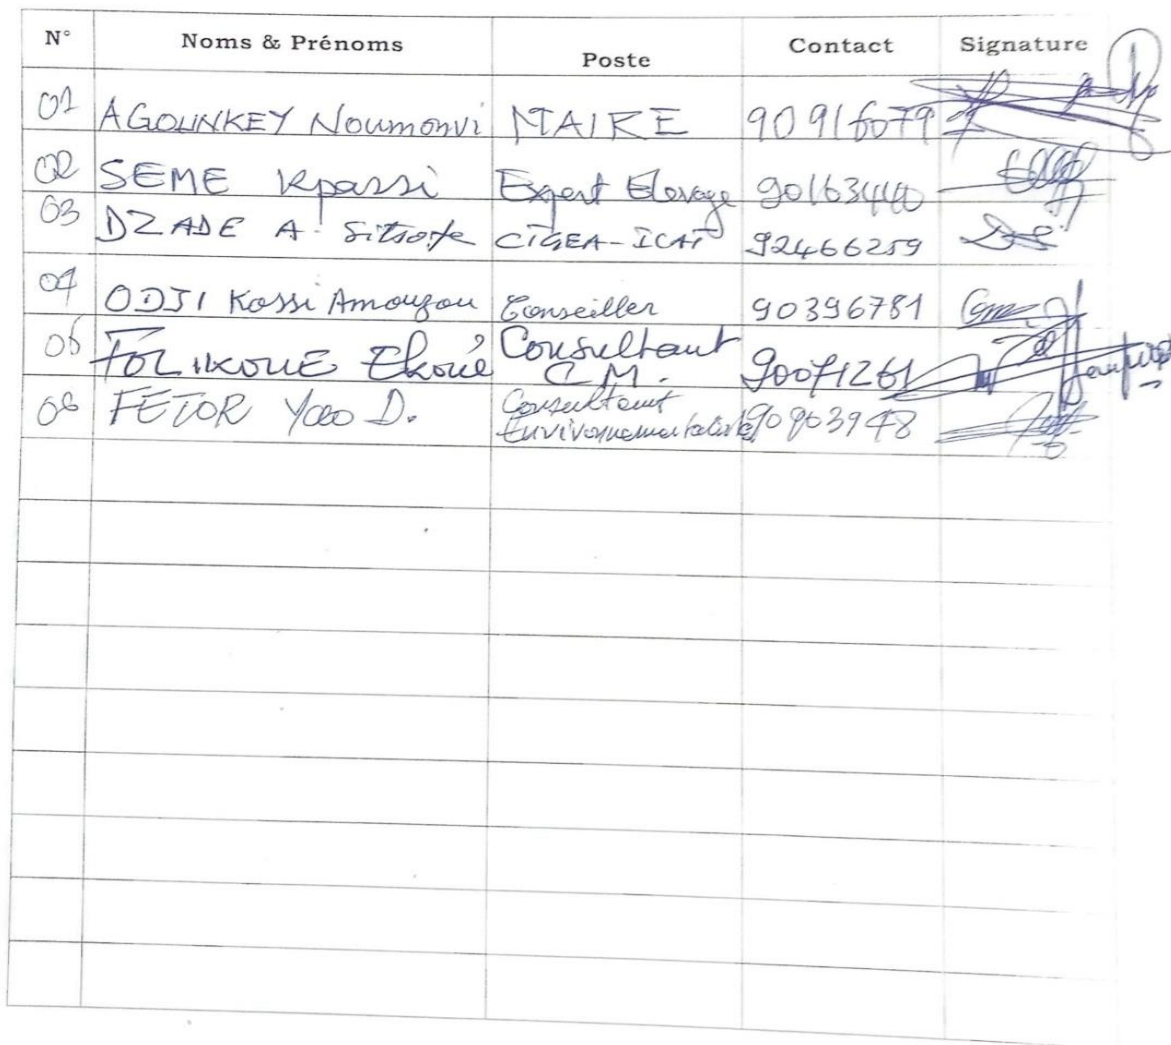 N° Noms & Prénoms Poste Contact Signature
01 AGOUNKEY Noumonvi MAIRE 90916079
02 SEME Kpassi Expert Elevage 90163440
03 DZADE A. CTGEA-ICAT 92466259
04 ODJI Kossi Amouzou Conseiller 90396781
05 FOLIKOUE Ekoué Consultant C.M. 90071261
06 FETOR Yao D. Consultant Environnementaliste 90903948